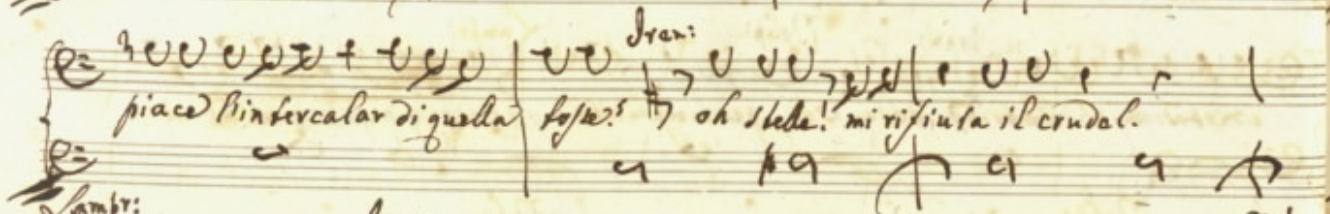 Iren:
piace l'intercalar di quella tosse? oh stelle! mi rifiuta il crudel.
Lambr: